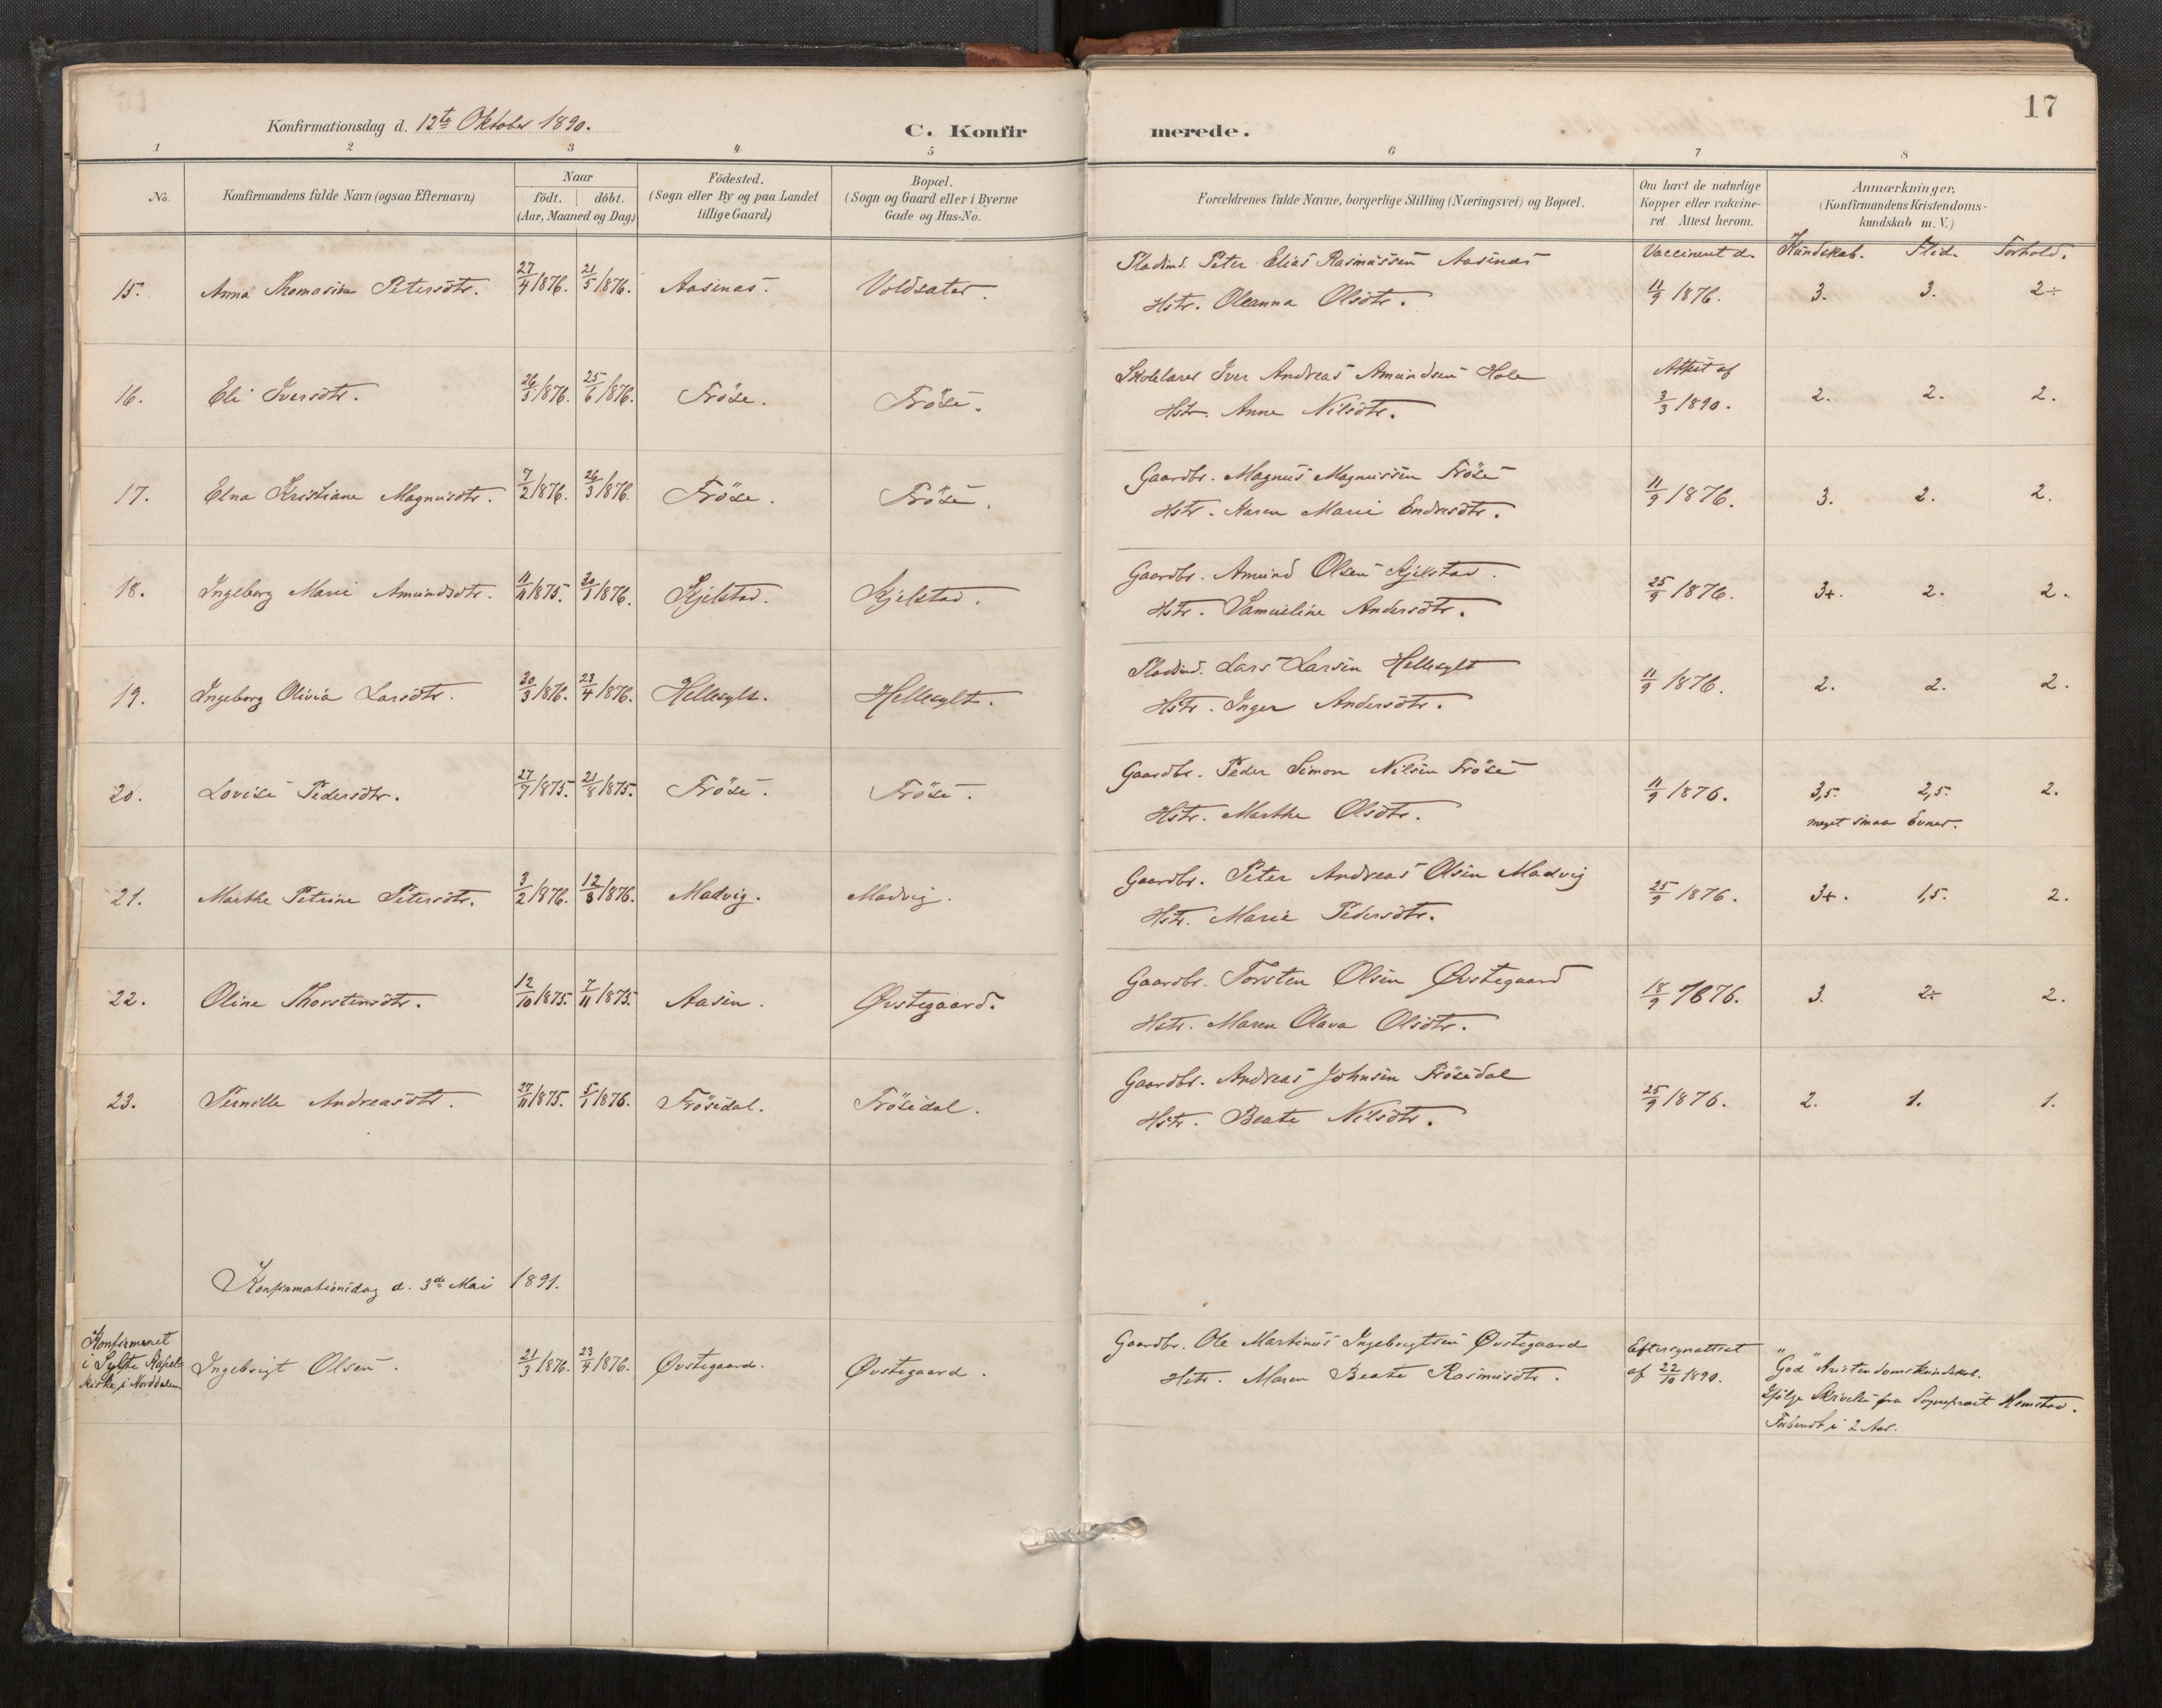 17
Konfirmationsdag d. 12te Oktober 1890.
C. Konfirmerede.
1 2 3 4 5 6 7 8
No. Konfirmandens fulde Navn (ogsaa Efternavn) Naar födt. döbt. (Aar, Maaned og Dag) Födested. (Sogn eller By og paa Landet tillige Gaard) Bopæl. (Sogn og Gaard eller i Byerne Gade og Hus-No. Forældrenes fulde Navne, borgerlige Stilling (Næringsvei) og Bopæl. Om havt de naturlige Kopper eller vakcineret Attest herom. Anmærkninger, (Konfirmandens Kristendomskundskab m. V.)
Vaccineret d. Kundskab. Flid. Forhold.
15. Anna Thomasine Petersdtr. 27/4 1876. 21/5 1876. Aasenas. Voldsater. Pladsm. Peter Elias Rasmussen Aasenas
Hstr. Oleanna Olsdtr. 11/9 1876. 3. 3. 2÷
16. Eli Iversdtr. 26/5 1876. 25/6 1876. Fröse. Fröse. Skolelærer Iver Andreas Amundsen Hole
Hstr. Anne Nilsdtr. Attest af 3/3 1890. 2. 2. 2.
17. Elna Kristiane Magnusdtr. 7/2 1876. 26/3 1876. Fröse. Fröse. Gaardbr. Magnus Magnussen Fröse
Hstr. Karen Marie Endresdtr. 11/9 1876. 3. 2. 2.
18. Ingeborg Marie Amundsdtr. 11/11 1875. 30/1 1876. Kjelstad. Kjelstad. Gaardbr. Amund Olsen Kjelstad.
Hstr. Samueline Andersdtr. 25/9 1876. 3+. 2. 2.
19. Ingeborg Olivia Larsdtr. 30/3 1876. 23/4 1876. Hellesylt. Hellesylt. Pladsm. Lars Larsen Hellesylt
Hstr. Inger Andersdtr. 11/9 1876. 2. 2. 2.
20. Lovise Pedersdtr. 27/7 1875. 21/8 1875. Fröse. Fröse. Gaardbr. Peder Simon Nilsen Fröse
Hstr. Marthe Olsdtr. 11/9 1876. 3,5. 2,5. 2.
meget smaa Evner.
21. Marthe Petrine Petersdtr. 3/2 1876. 12/3 1876. Madvig. Madvig. Gaardbr. Peter Andreas Olsen Madvig
Hstr. Marie Pedersdtr. 25/9 1876. 3+. 1,5. 2.
22. Oline Thorstensdtr. 12/10 1875. 7/11 1875. Aasen. Øvstegaard. Gaardbr. Torsten Olsen Øvstegaard
Hstr. Maren Olava Olsdtr. 18/9 1876. 3. 2÷ 2.
23. Pernille Andreasdtr. 27/11 1875. 5/1 1876. Frösedal. Frösedal. Gaardbr. Andreas Johnsen Frösedal
Hstr. Beate Nilsdtr. 25/9 1876. 2. 1. 1.
Konfirmationsdag d. 3de Mai 1891.
Konfirmeret
i Sylte Kapel
kirke, i Norddalen
Ingebrigt Olsen. 21/3 1876. 23/4 1876. Øvstegaard. Øvstegaard. Gaardbr. Ole Martinus Ingebrigtsen Øvstegaard
Hstr. Maren Beate Rasmusdtr. Eftersynattest
af 22/10 1890.
"God" Kristendomskundskab.
Ifölge Skrivelse fra Sogneprest Hemstad.
Forberedt i 2 Aar.